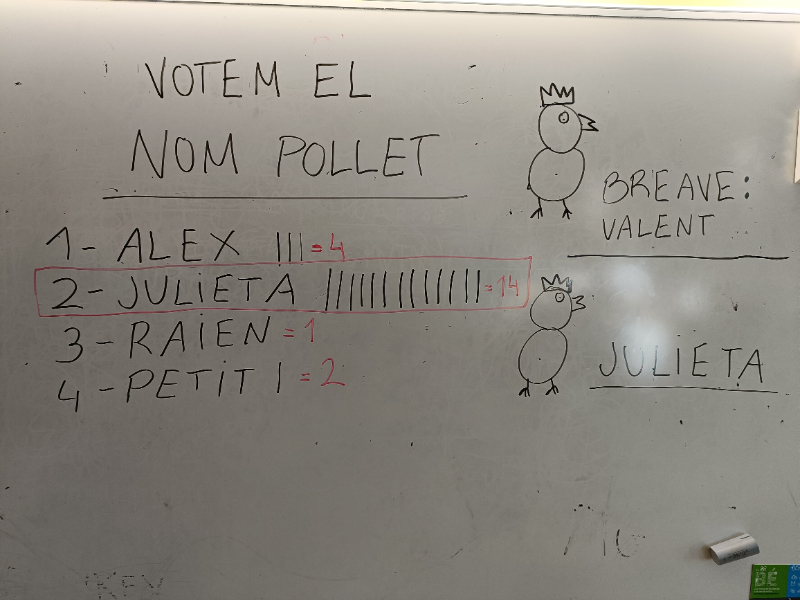 VOTEM EL
NOM POLLET
1- ALEX ||| = 4
2- JULIETA ||||||||||||| = 14
3 - RAIEN = 1
4 - PETIT | = 2
BREAVE:
VALENT
JULIETA
BÉ